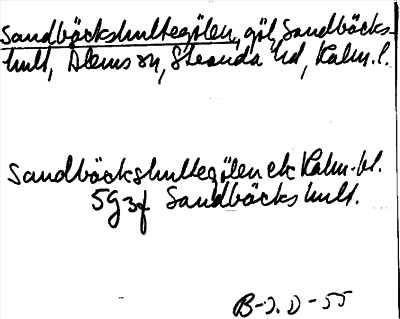 Sandbäckshultegölen, göl, Sandbäcks-
hult, Ålems sn, Stranda hd, Kalm. l.
Sandbäckshultegölen ek Kalm. bl.
5G3f Sandbäckshult.
B-J.D-55